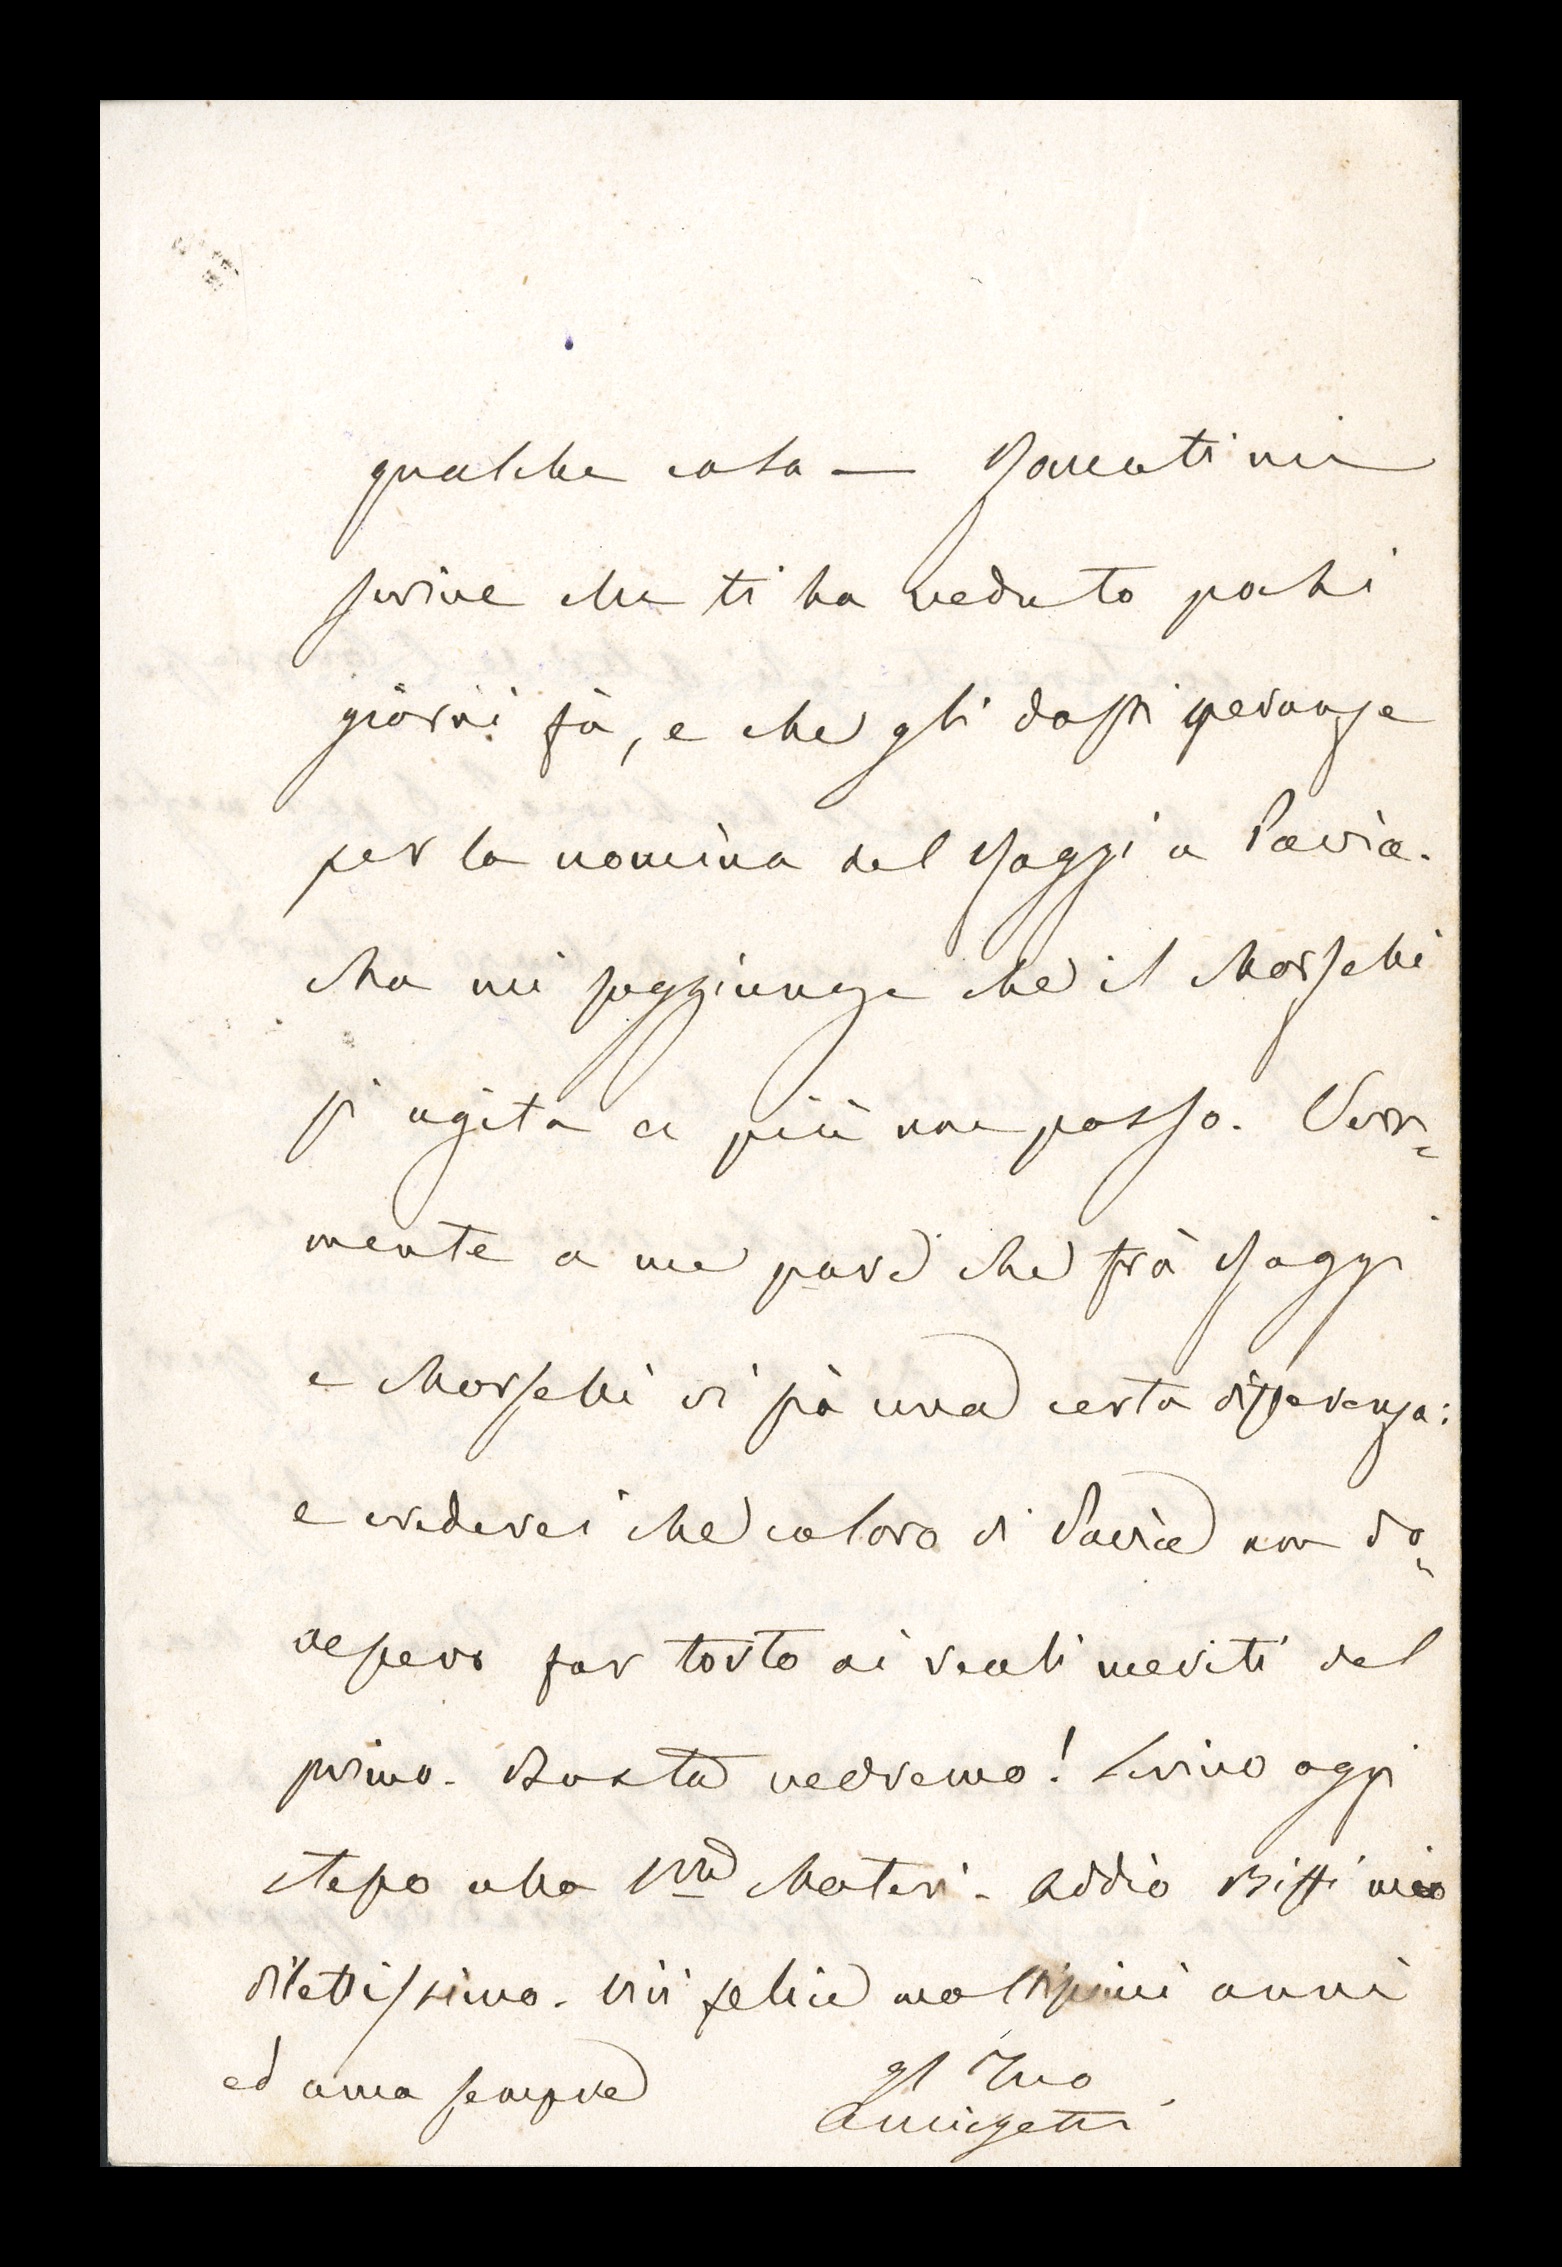 qualche cosa — Bonati mi
scrive che ti ha veduto pochi
giorni fà, e che gli dassi speranze
per la nomina del Maggi a Pavia.
Ma mi soggiunge che il Morselli
si agita a più non posso. Vera=
mente a me pare che frà Maggi
e Morselli vi sia una certa differenza:
e crederei che coloro di Pavia non do=
vessero far torto ai reali meriti del
primo. Basta vedremo! Scrivo oggi
stesso alla Materi. Addio Biffi mio
dilettissimo. Vivi felice moltissimi anni
ed ama sempre
Il Tuo
Lucigetti